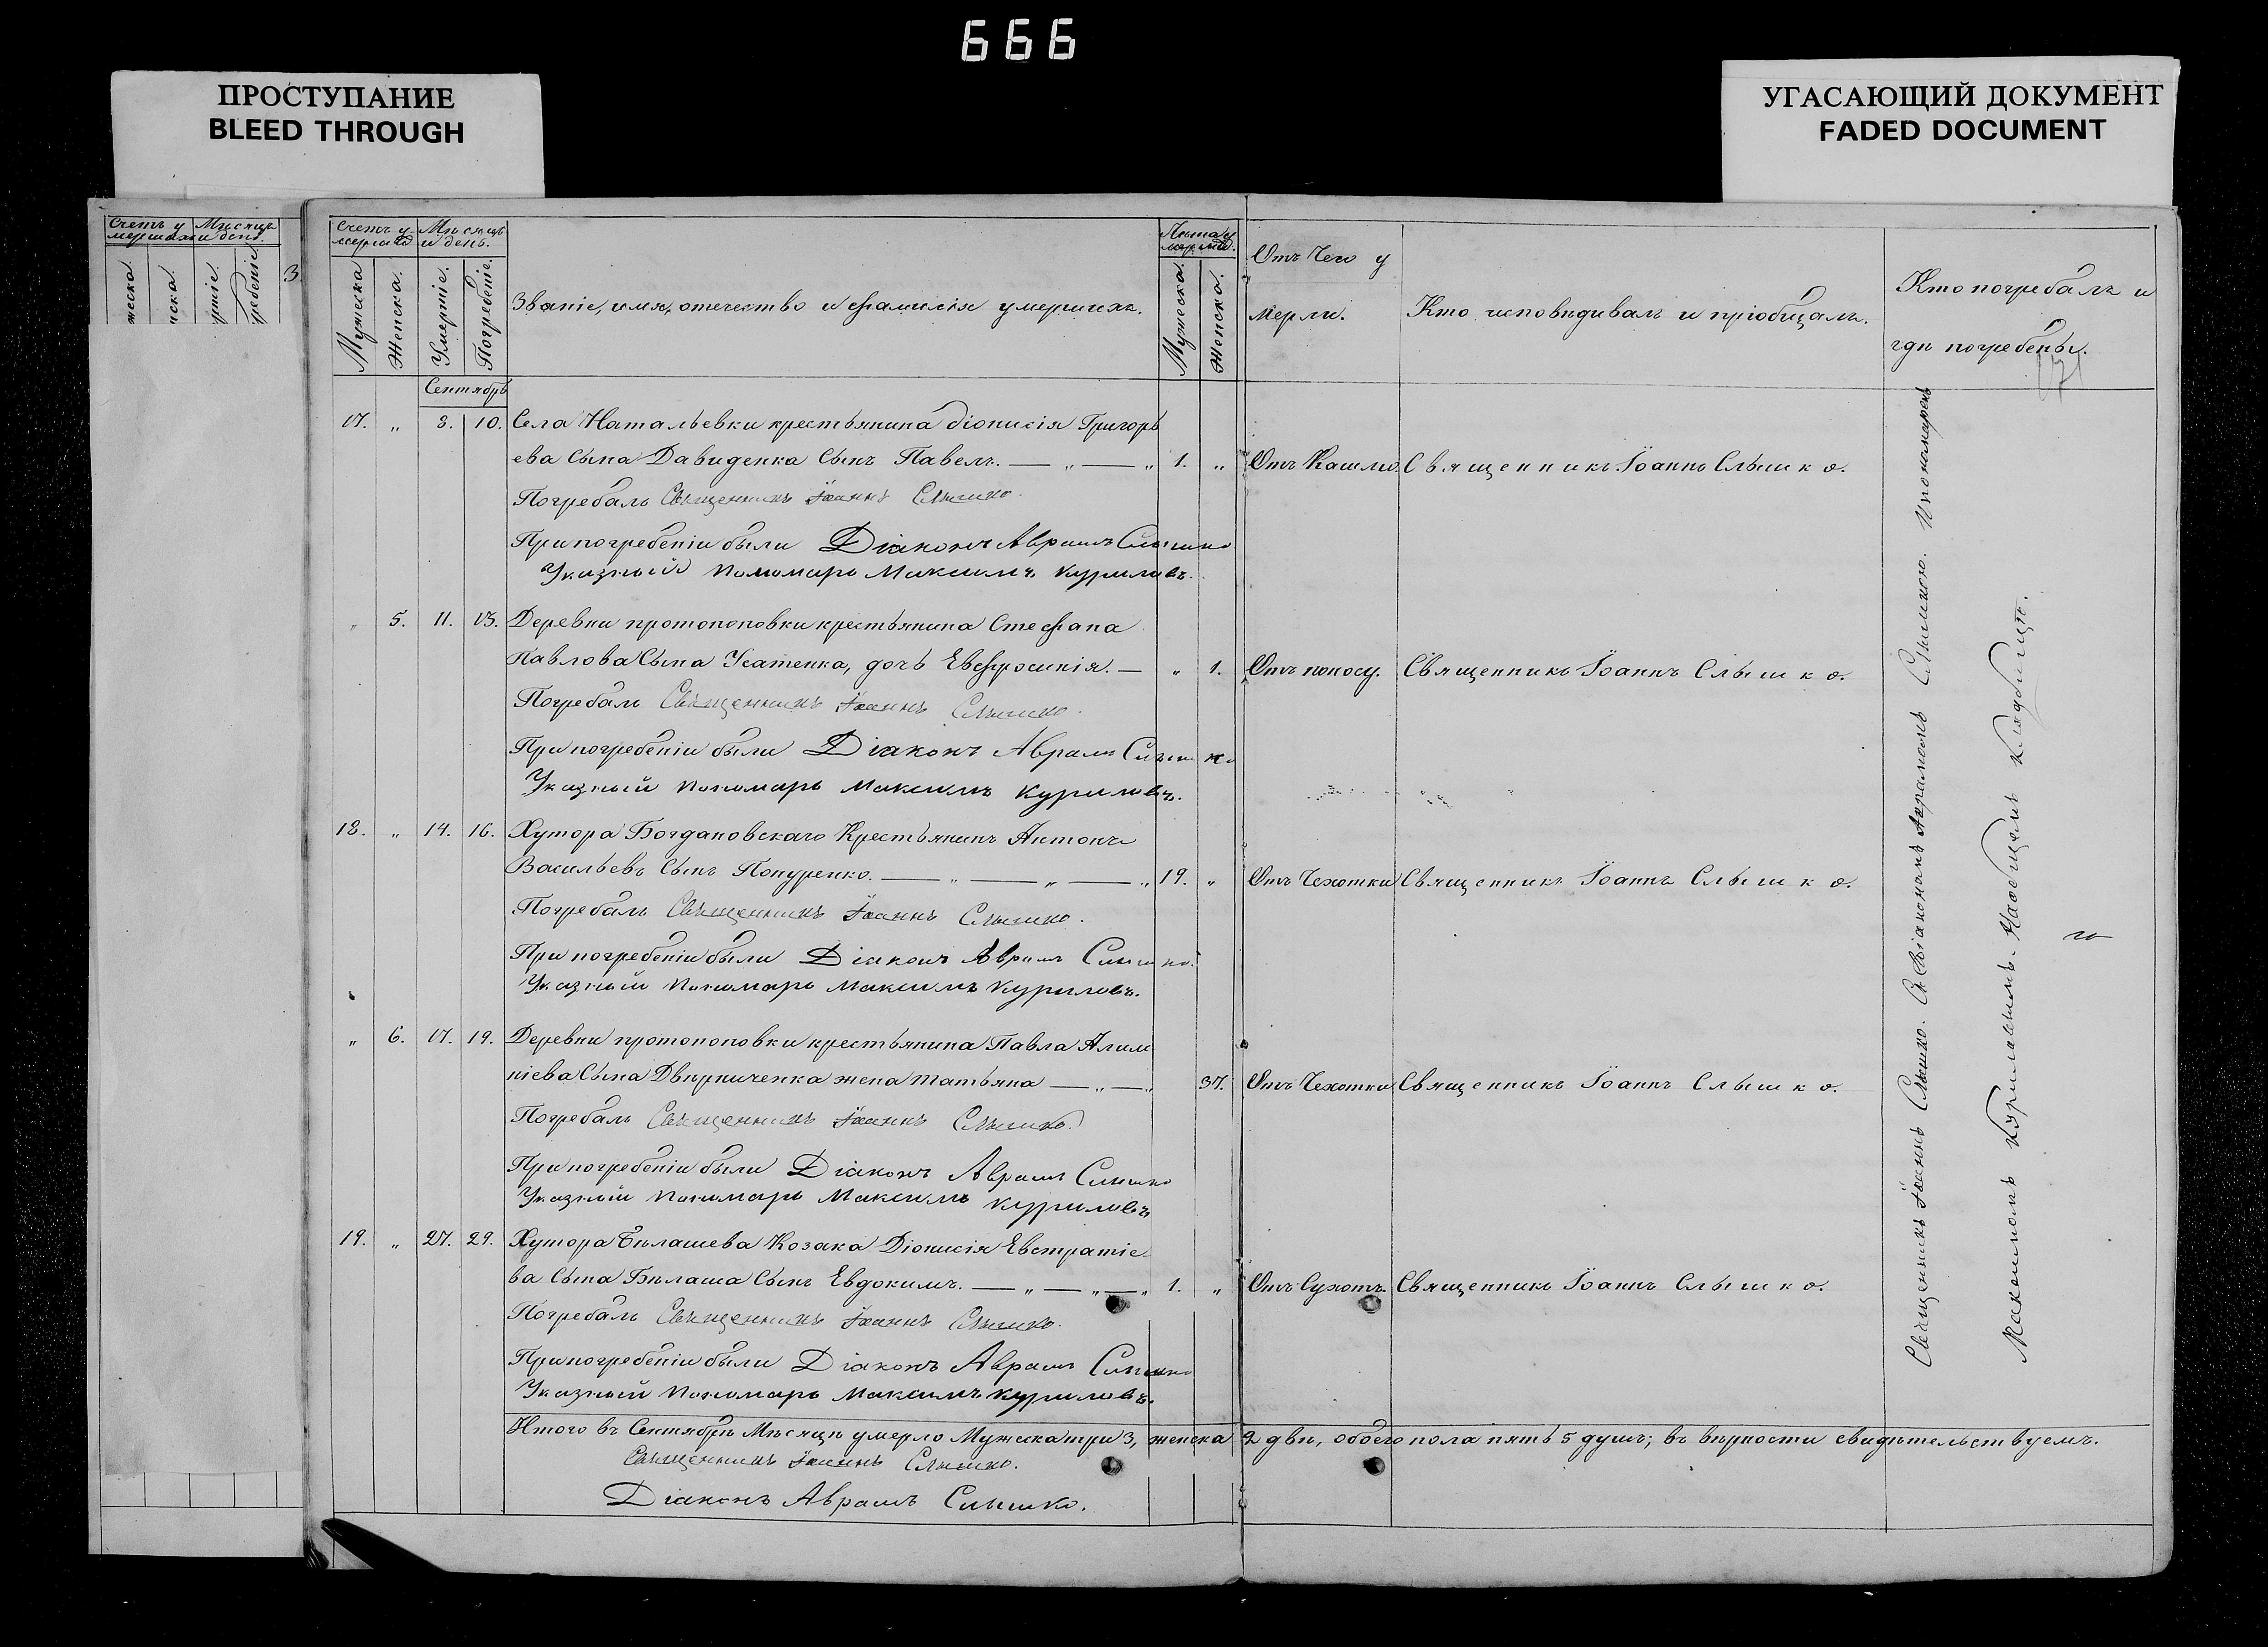 666
ПРОСТУПАНИЕ
BLEED THROUGH
УГАСАЮЩИЙ ДОКУМЕНТ
FADED DOCUMENT
Счетъ у Мѣсяцъ
мершихъ и день.
Счетъ у- Мѣсяцъ
мершихъ и день.
Мужеска
Женска.
Умертіе.
Погребеніе.
Званіе, имя, отечество и фамилія умершихъ.
Лѣта у
мершихъ.
Мужеска.
Женска.
Отъ Чего у
мерли.
Кто исповѣдивалъ и пріобщалъ.
Кто погребалъ и
гдѣ погребены.
Сентябрь
17. „ 8. 10. Села Натальевки крестьянина Діонисія Григорь
ева Сына Давиденка Сынъ Павелъ. — „ — „ 1. „ Отъ Кашлю. Священникъ Іоаннъ Слышко.
Погребалъ Священникъ Іоаннъ Слышко.
При погребеніи были Діаконъ Аврамъ Слышко
Указный Пономарь Максимъ Куриловъ.
„ 5. 11. 13. Деревни протопоповки крестьянина Стефана
Павлова Сына Усатенка, дочь Евфросинія. — „ 1. Отъ поносу. Священникъ Іоаннъ Слышко.
Погребалъ Священникъ Іоаннъ Слышко.
При погребеніи были Діаконъ Аврамъ Слышко
Указный Пономарь Максимъ Куриловъ.
18. „ 14. 16. Хутора Богдановскаго Крестьянинъ Антонъ
Васильевъ Сынъ Попуренко. — „ — „ — „ 19. „ Отъ Чехотки Священникъ Іоаннъ Слышко.
Погребалъ Священникъ Іоаннъ Слышко.
При погребеніи были Діаконъ Аврамъ Слышко.
Указный Пономарь Максимъ Куриловъ.
„ 6. 17. 19. Деревни протопоповки крестьянина Павла Алим
піева Сына Двѣрниченка жена Татьяна — „ — „ 37. Отъ Чехотки Священникъ Іоаннъ Слышко.
Погребалъ Священникъ Іоаннъ Слышко.
При погребеніи были Діаконъ Аврамъ Слышко
Указный Пономарь Максимъ Куриловъ
19. „ 27. 29. Хутора Бѣлашева Козака Діонисія Евстратіе-
ва Сына Бѣлаша Сынъ Евдокимъ. — „ — „ — „ 1. „ Отъ Сухотъ. Священникъ Іоаннъ Слышко.
Погребалъ Священникъ Іоаннъ Слышко.
При погребеніи были Діаконъ Аврамъ Слышко
Указный Пономарь Максимъ Куриловъ.
Итого въ Сентябрѣ Мѣсяцѣ умерло Мужеска три 3, женска 2 двѣ, обоего пола пять 5 душъ; въ вѣрности свидѣтельствуемъ.
Священникъ Іоаннъ Слышко.
Діаконъ Аврамъ Слышко.
Священникъ Іоаннъ Слышко. Съ Діакономъ Аврамомъ Слышкою. И пономаремъ
Максимомъ Куриловымъ. На общемъ кладбищѣ.